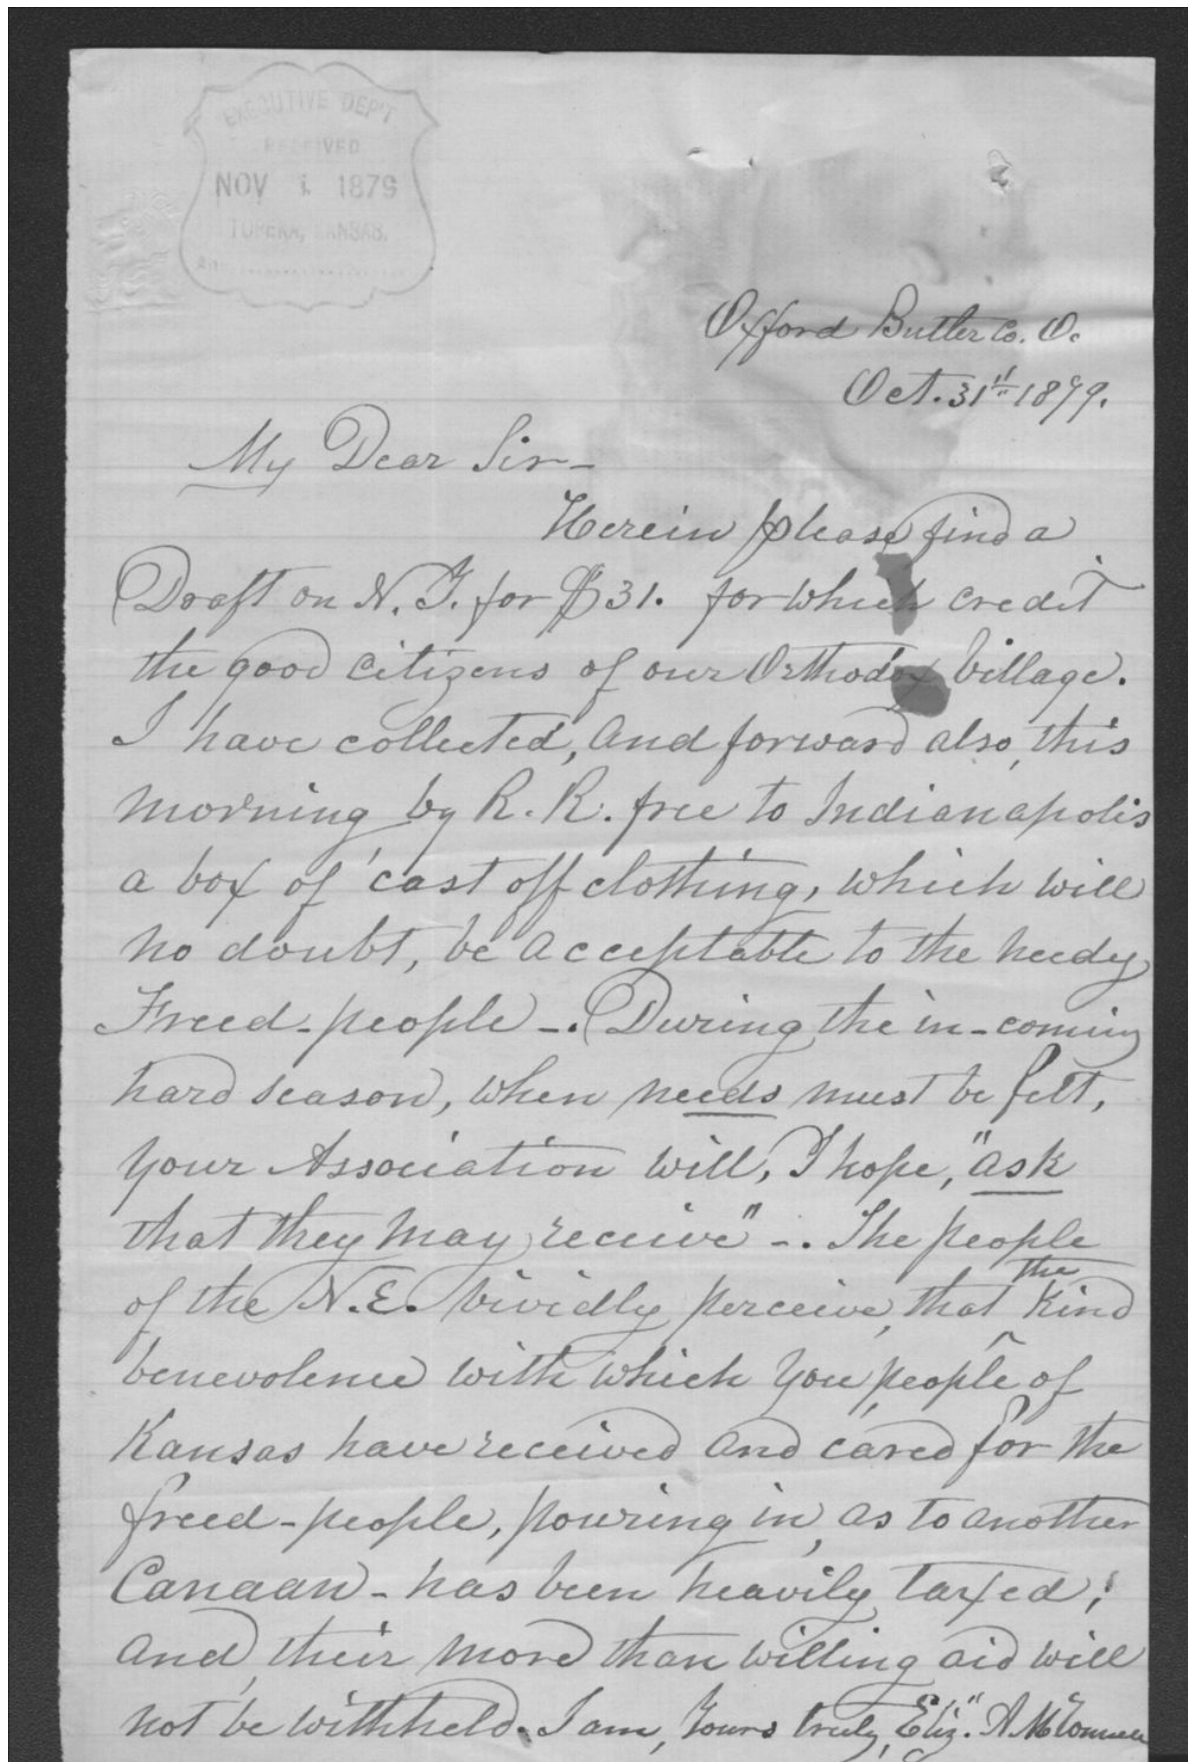 EXECUTIVE DEP'T.
RECEIVED
NOV 1 1879
TOPEKA, KANSAS.
Oxford Butler Co. O.
Oct. 31" 1879.
My Dear Sir-
Herein please find a
Draft on N.Y. for $31. for which credit
the good citizens of our Orthodox Village.
I have collected, and forward also, this
morning by R.R. free to Indianapolis
a box of cast off clothing, which will
no doubt, be acceptable to the needy
Freed-people -. During the in-coming
hard season, when needs must be felt,
your Association will, I hope, "ask
that they may receive" -. The people
of the N.E. vividly perceive, that the kind
benevolence with which you people of
Kansas have received and cared for the
freed-people, pouring in, as to another
Canaan - has been heavily taxed;
and, their more than willing aid will
not be withheld. I am, Yours truly, Eliz". A. McConnell